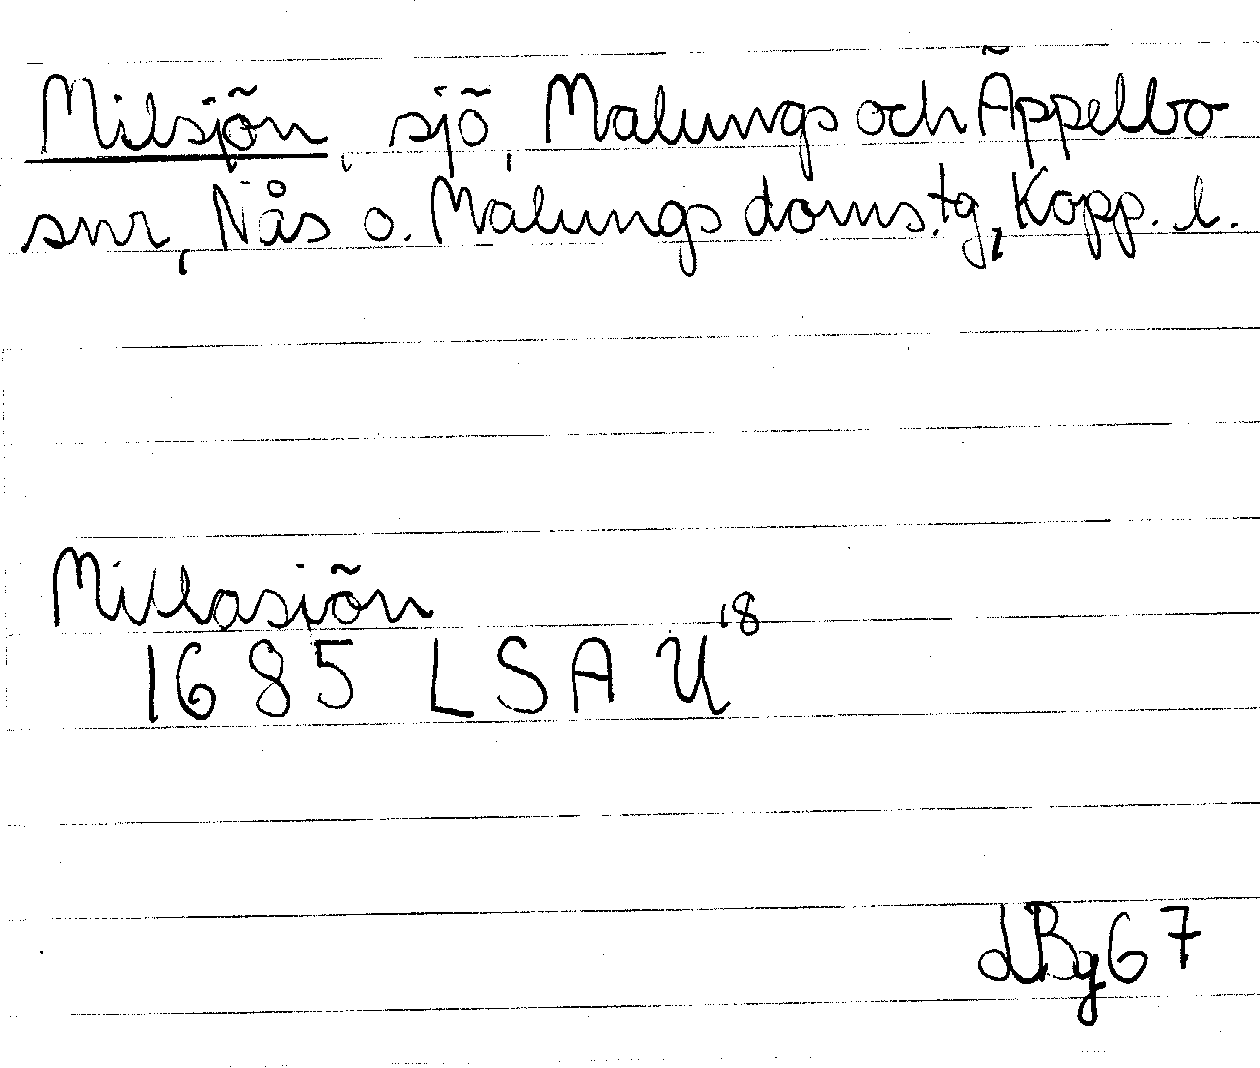 Milsjön, sjö, Malungs och Äppelbo
snr, Nås o. Malungs doms.tg, Kopp. l.
Millasiön
1685 LSA U18
LBg67